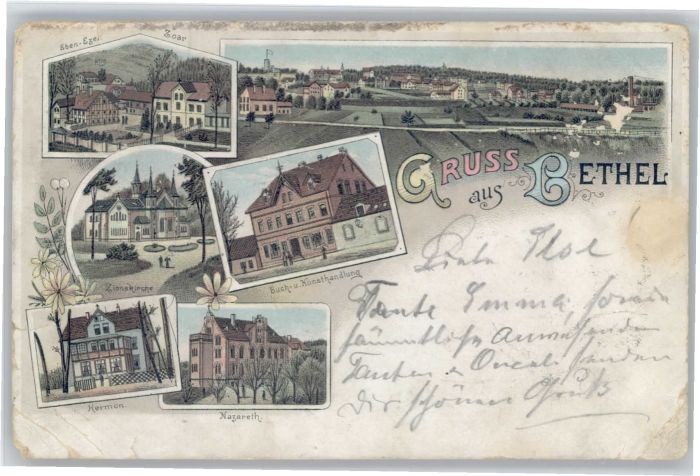 Eben-Ezer
Zoar
GRUSS
aus
BETHEL
Zionskirche
Buch- u. Kunsthandlung
Hermon.
Nazareth.
Liebe Else
Tante Emma, sowie
sämmtliche Anwesenden
Tanten u. Oncel senden
Dir schönen Gruß